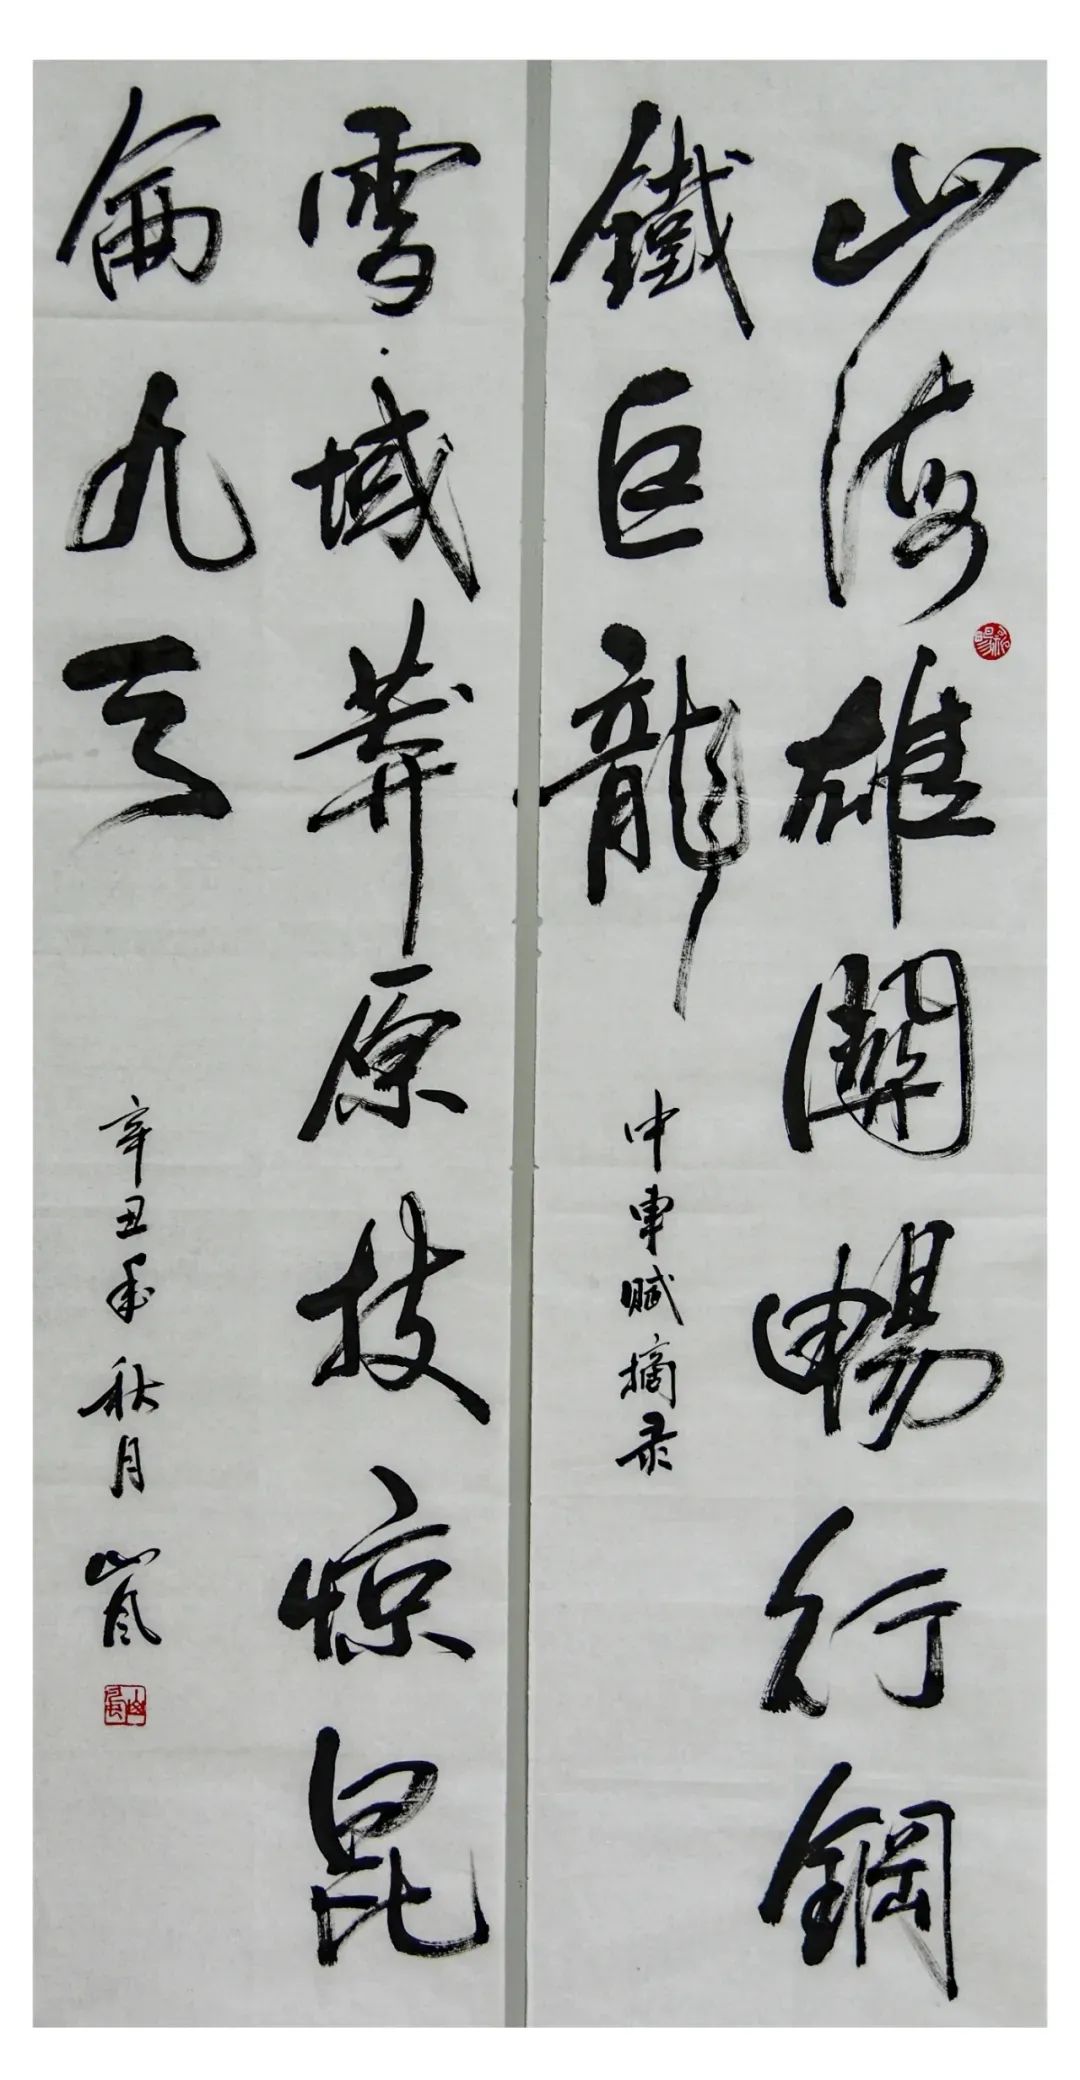 山海雄關暢行鋼
鐵巨龍
中車賦摘录
雪域莽原技惊昆
侖九天
辛丑年秋月 山風